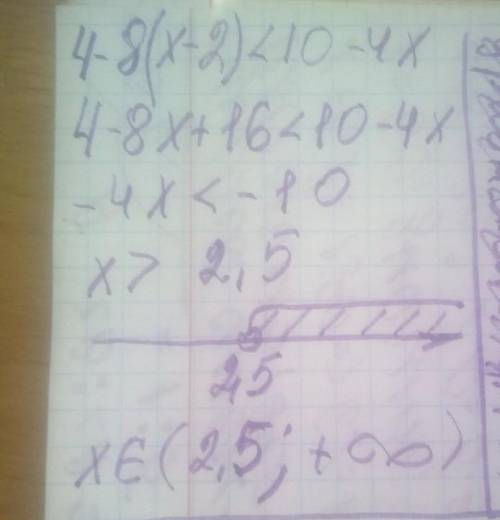 4-8(x-2)<10-4x
4-8x+16<10-4x
-4x<-10
x> 2,5
2,5
x∈(2,5; +∞)